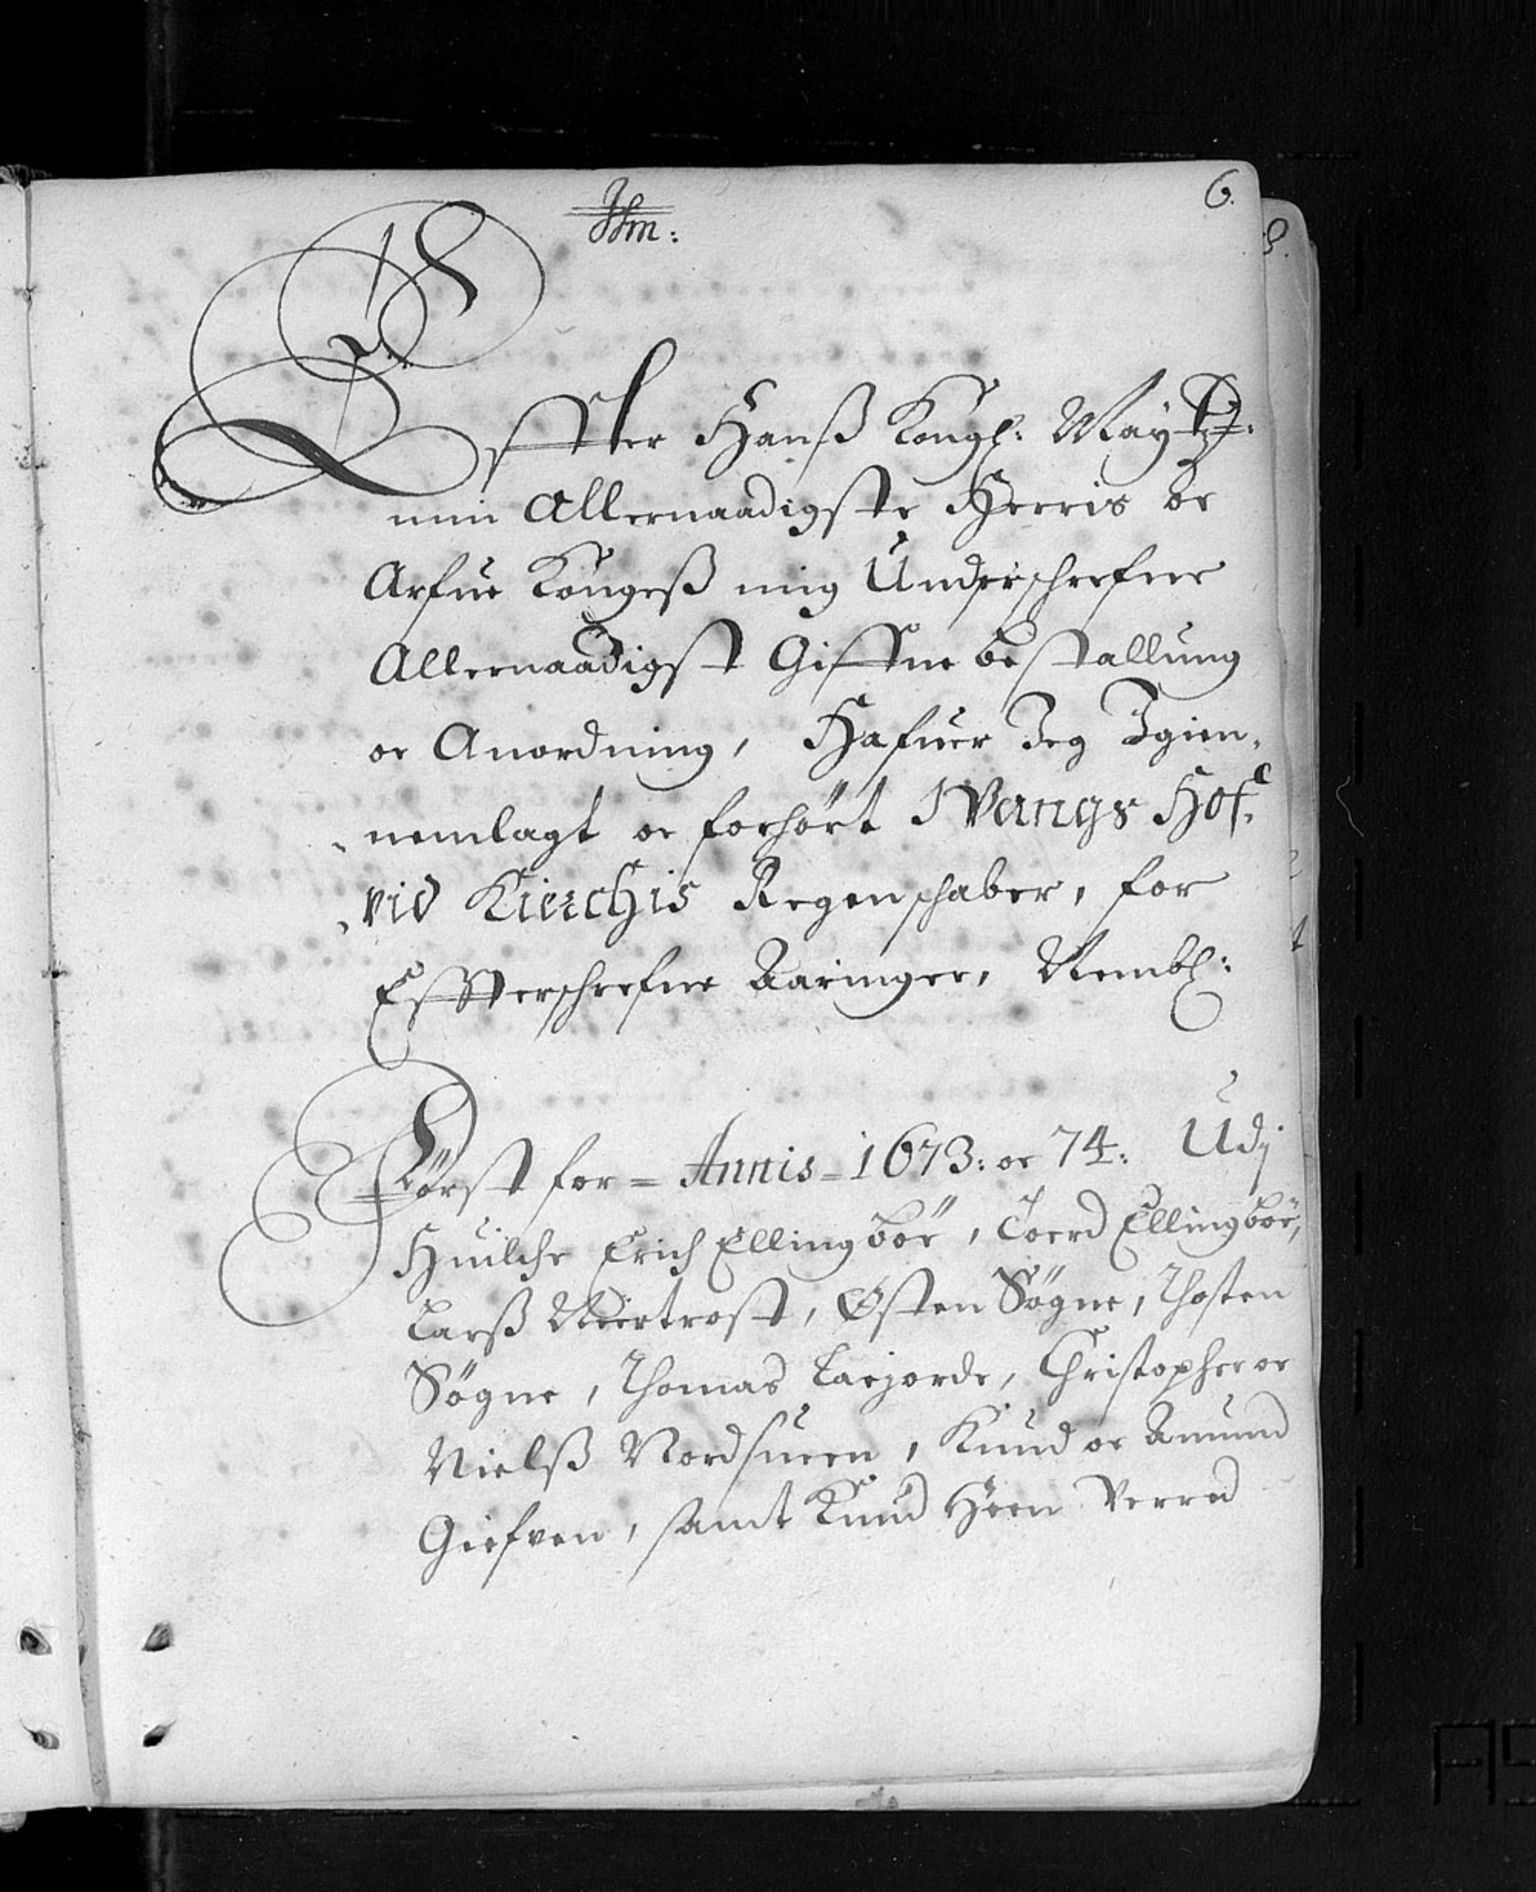 6.
Jhm:
Effter Hanß Kongl: Mayttz:
min Allernaadigste Herris oc
Arfue Kongeß mig Underschrefne
Allernaadigst Giffne bestallung
oc Anordning, Hafuer Jeg Igien,
nemlagt oc forhört Wangs Hof,
vid Kierchis Regenschaber, for
Effterschrefne Aaringer, Nembl:
Först for = Annis = 1673: oc 74: Udj
Huilche Erich Ellingböe, Toerd Ellingböe,
Larß Neertrost, Østen Sögne, Thosten
Sögne, Thomas Larjorde, Christopher oc
Nielß Nordsueen, Knud oc Amund
Giefven, samt Knud Hoen Verred